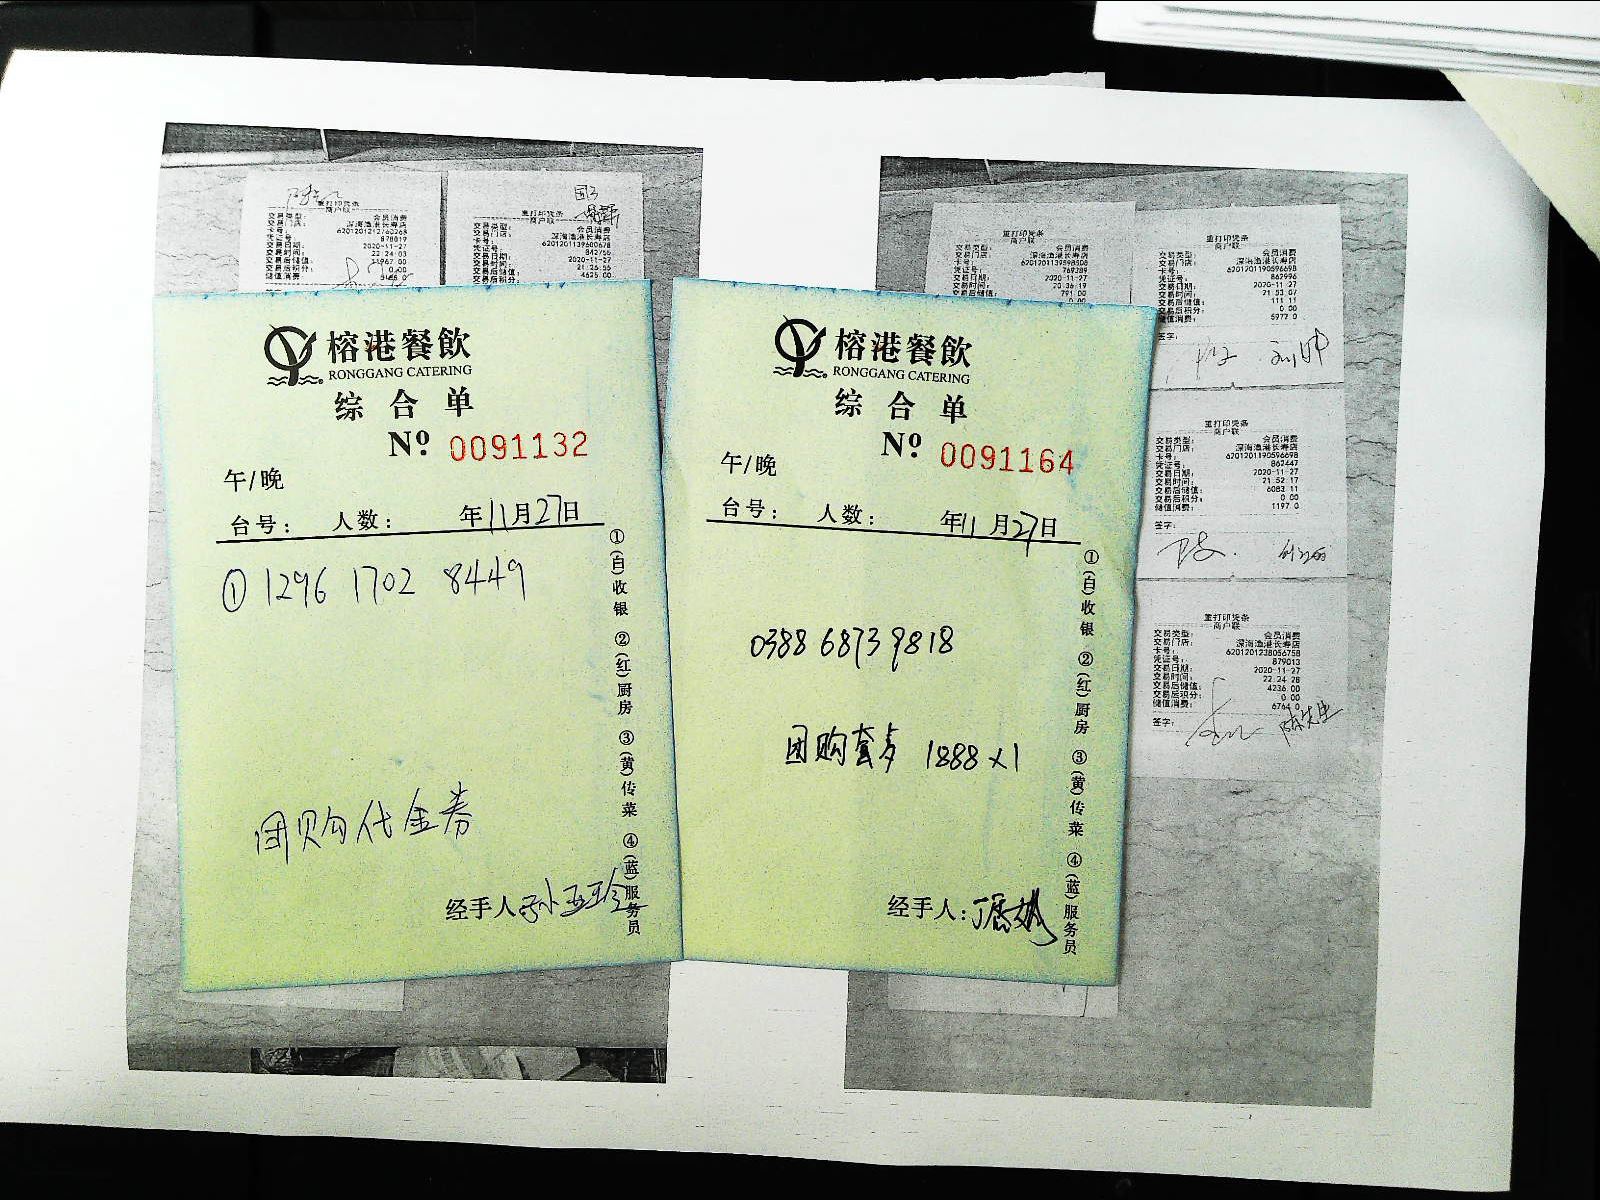 重打印凭条
商户联
交易类型: 会员消费
交易门店: 深海渔港长寿店
卡号: 6201201212760268
凭证号: 878017
交易日期: 2020-11-27
交易时间: 22:24:03
交易后积分: 0.00
储值消费:
国3
重打印凭条
商户联
交易类型: 会员消费
交易门店: 深海渔港长寿店
卡号: 6201201139600678
凭证号: 842755
交易日期: 2020-11-27
交易时间: 21:26:55
交易后储值: 4625.00
交易后积分:
榕港餐飲
RONGGANG CATERING
综合单
Nº 0091132
午/晚
台号: 人数: 年11月27日
① 1296 1702 8449
团购代金券
经手人
①(白)收银 ②(红)厨房 ③(黄)传菜 ④(蓝)服务员
榕港餐飲
RONGGANG CATERING
综合单
Nº 0091164
午/晚
台号: 人数: 年11月27日
0388 6873 9818
团购套 1888×1
经手人:
①(白)收银 ②(红)厨房 ③(黄)传菜 ④(蓝)服务员
重打印凭条
商户联
交易类型: 会员消费
交易门店: 深海渔港长寿店
卡号: 6201201139598508
凭证号: 769389
交易日期: 2020-11-27
交易时间: 20:36:19
交易后储值: 791.00
0.00
重打印凭条
商户联
交易类型: 会员消费
交易门店: 深海渔港长寿店
卡号: 6201201190596698
凭证号: 862996
交易日期: 2020-11-27
交易时间: 21:53:07
交易后储值: 111.11
交易后积分: 0.00
储值消费: 5972.0
签字:
重打印凭条
商户联
交易类型: 会员消费
交易门店: 深海渔港长寿店
卡号: 6201201190596698
凭证号: 862447
交易日期: 2020-11-27
交易时间: 21:52:17
交易后储值: 6083.11
交易后积分: 0.00
储值消费: 1197.0
签字:
重打印凭条
商户联
交易类型: 会员消费
交易门店: 深海渔港长寿店
卡号: 6201201238056758
凭证号: 879013
交易日期: 2020-11-27
交易时间: 22:24:28
交易后储值: 4236.00
交易后积分: 0.00
储值消费: 6764.0
签字: 陈先生